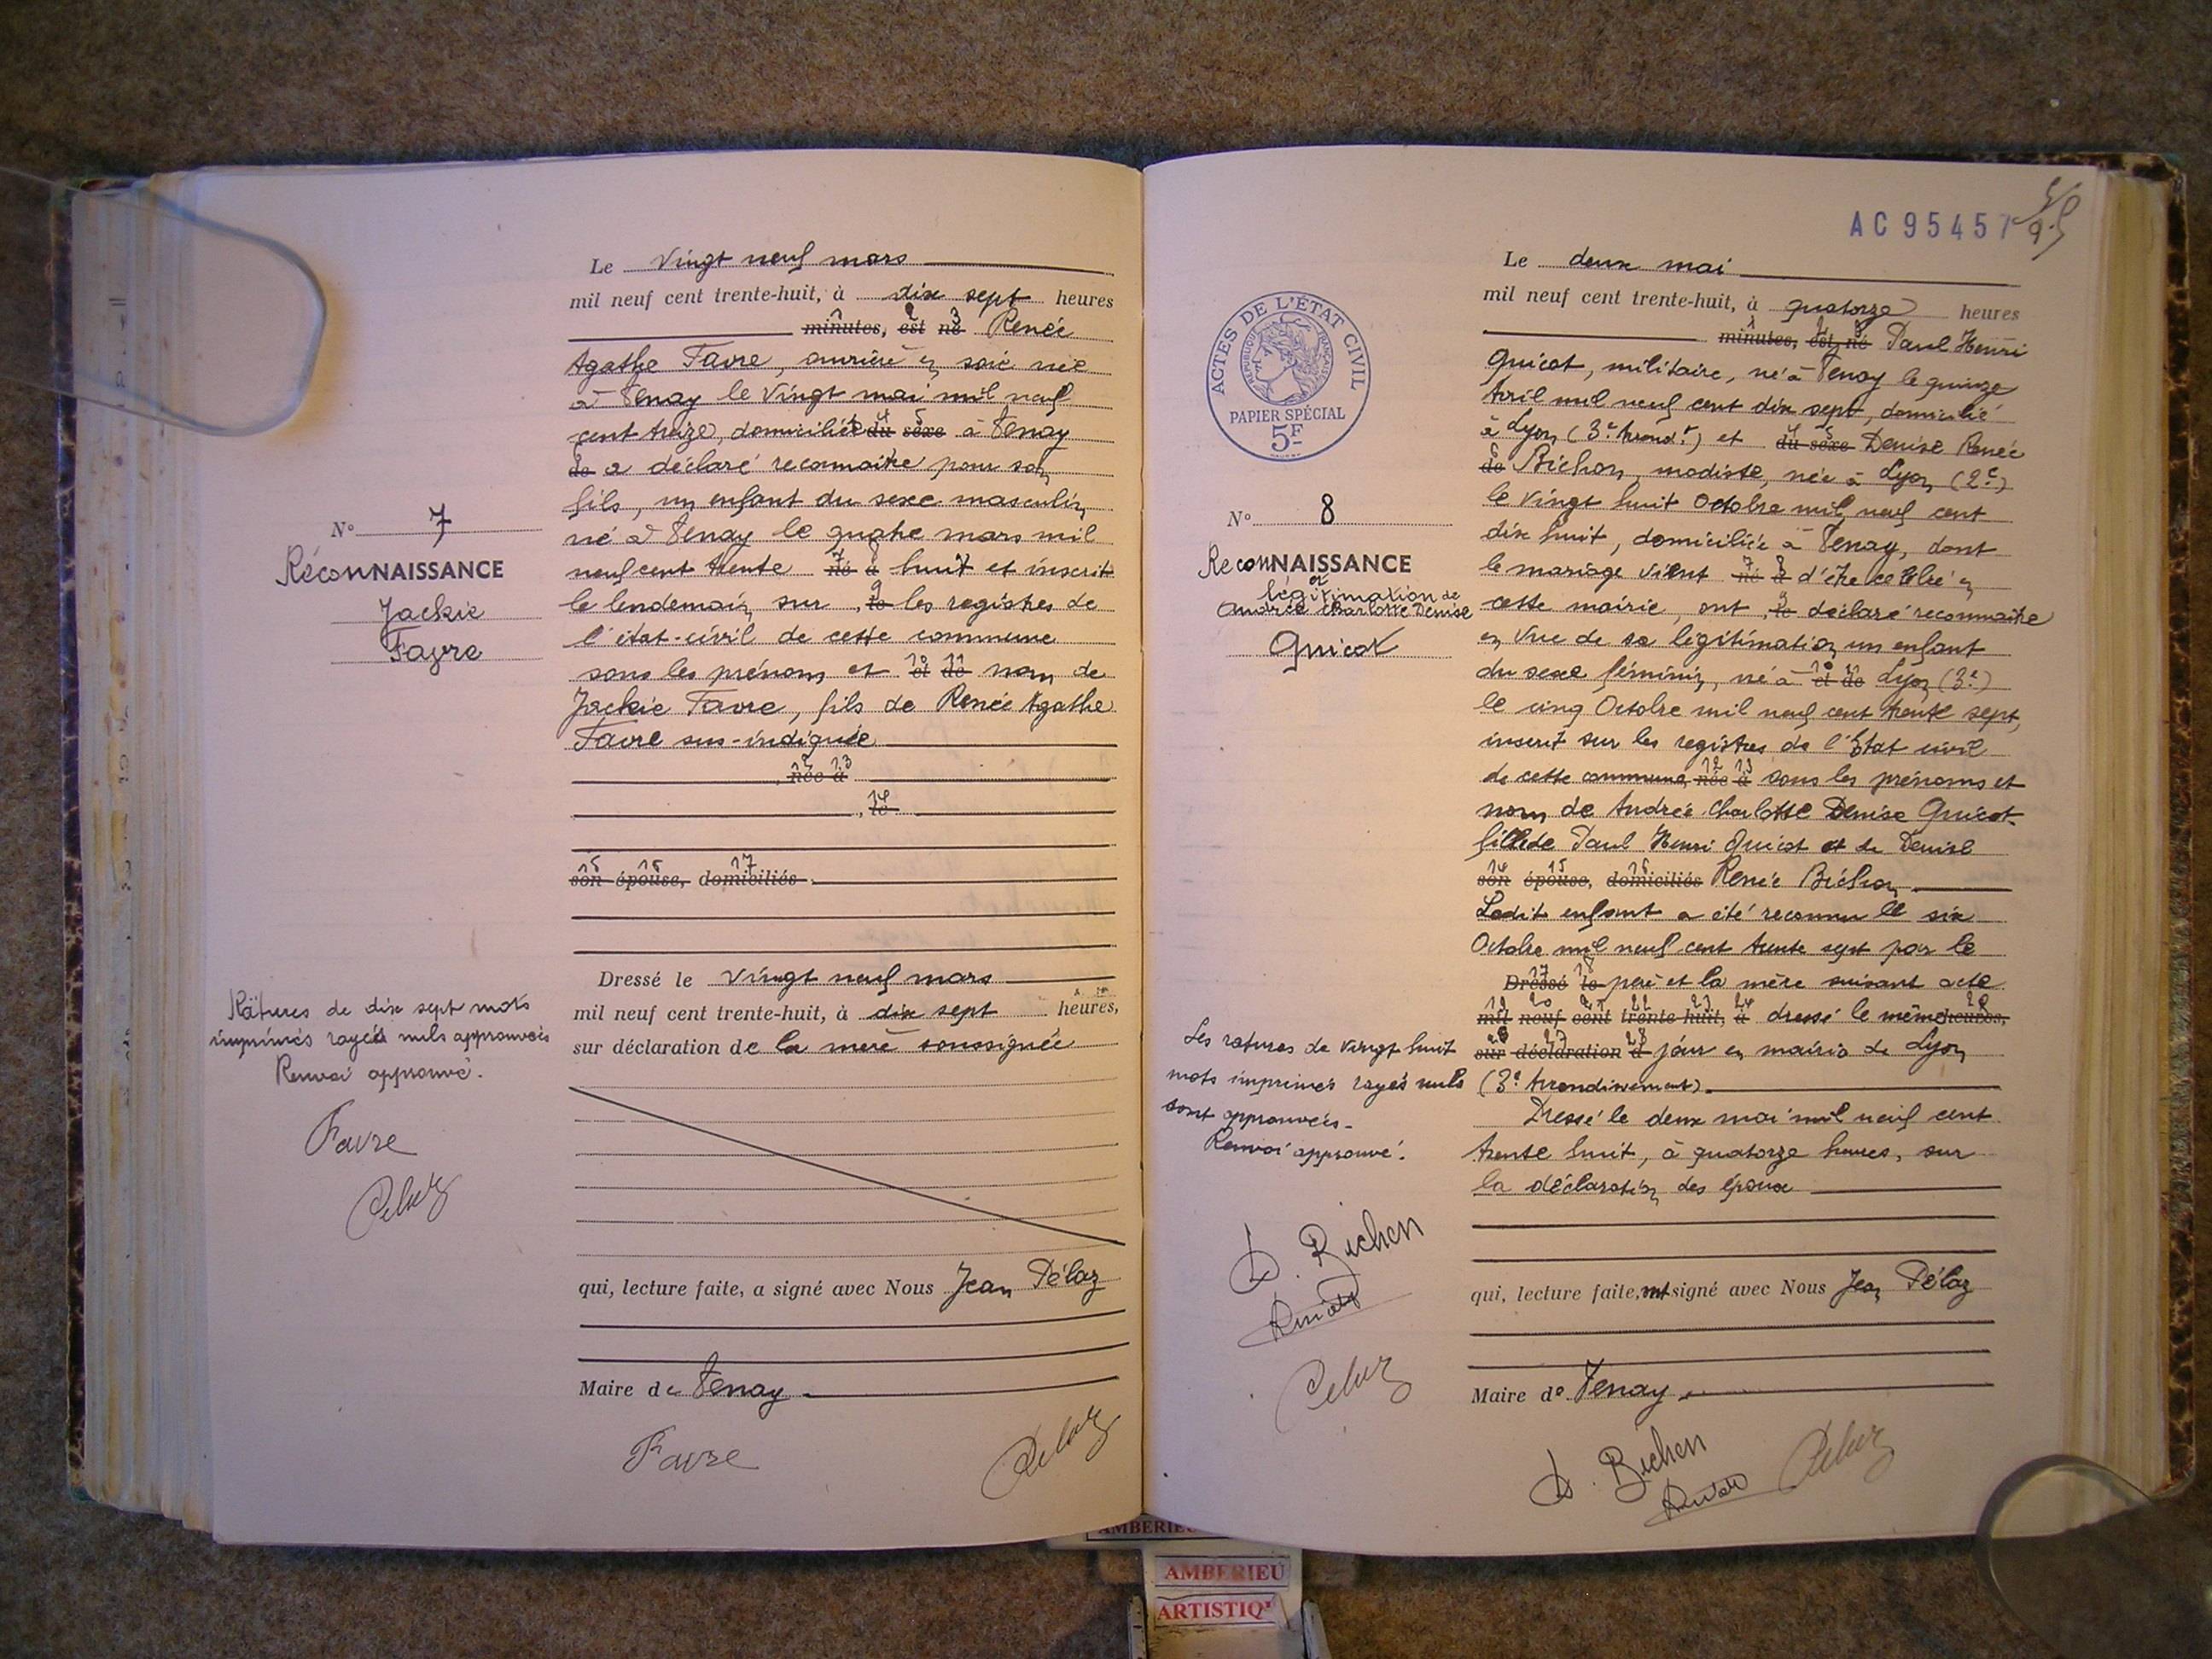 Le vingt neuf mars
mil neuf cent trente-huit, à dix sept heures
minutes, est né Renée
Agathe Favre, ouvrière en soie née
à Tenay le vingt mai mil neuf
cent treize, domiciliée du sexe à Tenay
de a déclaré reconnaître pour son
fils, un enfant du sexe masculin
né à Tenay le quatre mars mil
neuf cent trente né à huit et inscrit
le lendemain sur , le les registres de
l'état-civil de cette commune
sous les prénoms et et de nom de
Jackie Favre, fils de Renée Agathe
Favre sus-indiquée
, née à
, le
son épouse, domiciliés
Dressé le vingt neuf mars
mil neuf cent trente-huit, à dix sept heures,
sur déclaration de la mère soussignée
qui, lecture faite, a signé avec Nous Jean Délaz
Maire de Tenay
Favre
N° 7
RéconNAISSANCE
Jackie
Favre
Ratures de dix sept mots
imprimés rayés nuls approuvés
Renvoi approuvé.
Favre
AC 95457
ACTES DE L'ÉTAT CIVIL
RÉPUBLIQUE FRANÇAISE
PAPIER SPÉCIAL
5F
Le deux mai
mil neuf cent trente-huit, à quatorze heures
minutes, est né Paul Henri
Guicot, militaire, né à Tenay le quinze
Avril mil neuf cent dix sept, domicilié
à Lyon (3e Arrondt) et du sexe Denise Renée
de Bichon, modiste, née à Lyon (2e)
le vingt huit Octobre mil neuf cent
dix huit, domiciliée à Tenay, dont
le mariage vient né à d'être célébré en
cette mairie, ont , le déclaré reconnaître
en vue de sa légitimation un enfant
du sexe féminin, né à et de Lyon (3e)
le cinq Octobre mil neuf cent trente sept,
inscrit sur les registres de l'Etat civil
de cette commune, née à sous les prénoms et
nom de Andrée Charlotte Denise Guicot
fille de Paul Henri Guicot et de Denise
son épouse, domiciliés Renée Bichon
Ledit enfant a été reconnu le six
Octobre mil neuf cent trente sept par le
Dressé le père et la mère suivant acte
mil neuf cent trente-huit, à dressé le même heures,
sur déclaration d jour en mairie de Lyon
(3e Arrondissement).
Dressé le deux mai mil neuf cent
trente huit, à quatorze heures, sur
la déclaration des époux
qui, lecture faite, ont signé avec Nous Jean Délaz
Maire de Tenay
D. Bichon
N° 8
ReconNAISSANCE
et
légitimation de
Andrée Charlotte Denise
Guicot
Les ratures de vingt huit
mots imprimés rayés nuls
sont approuvés.
Renvoi approuvé.
D. Bichon
AMBERIEU
AMBERIEU
ARTISTIQ